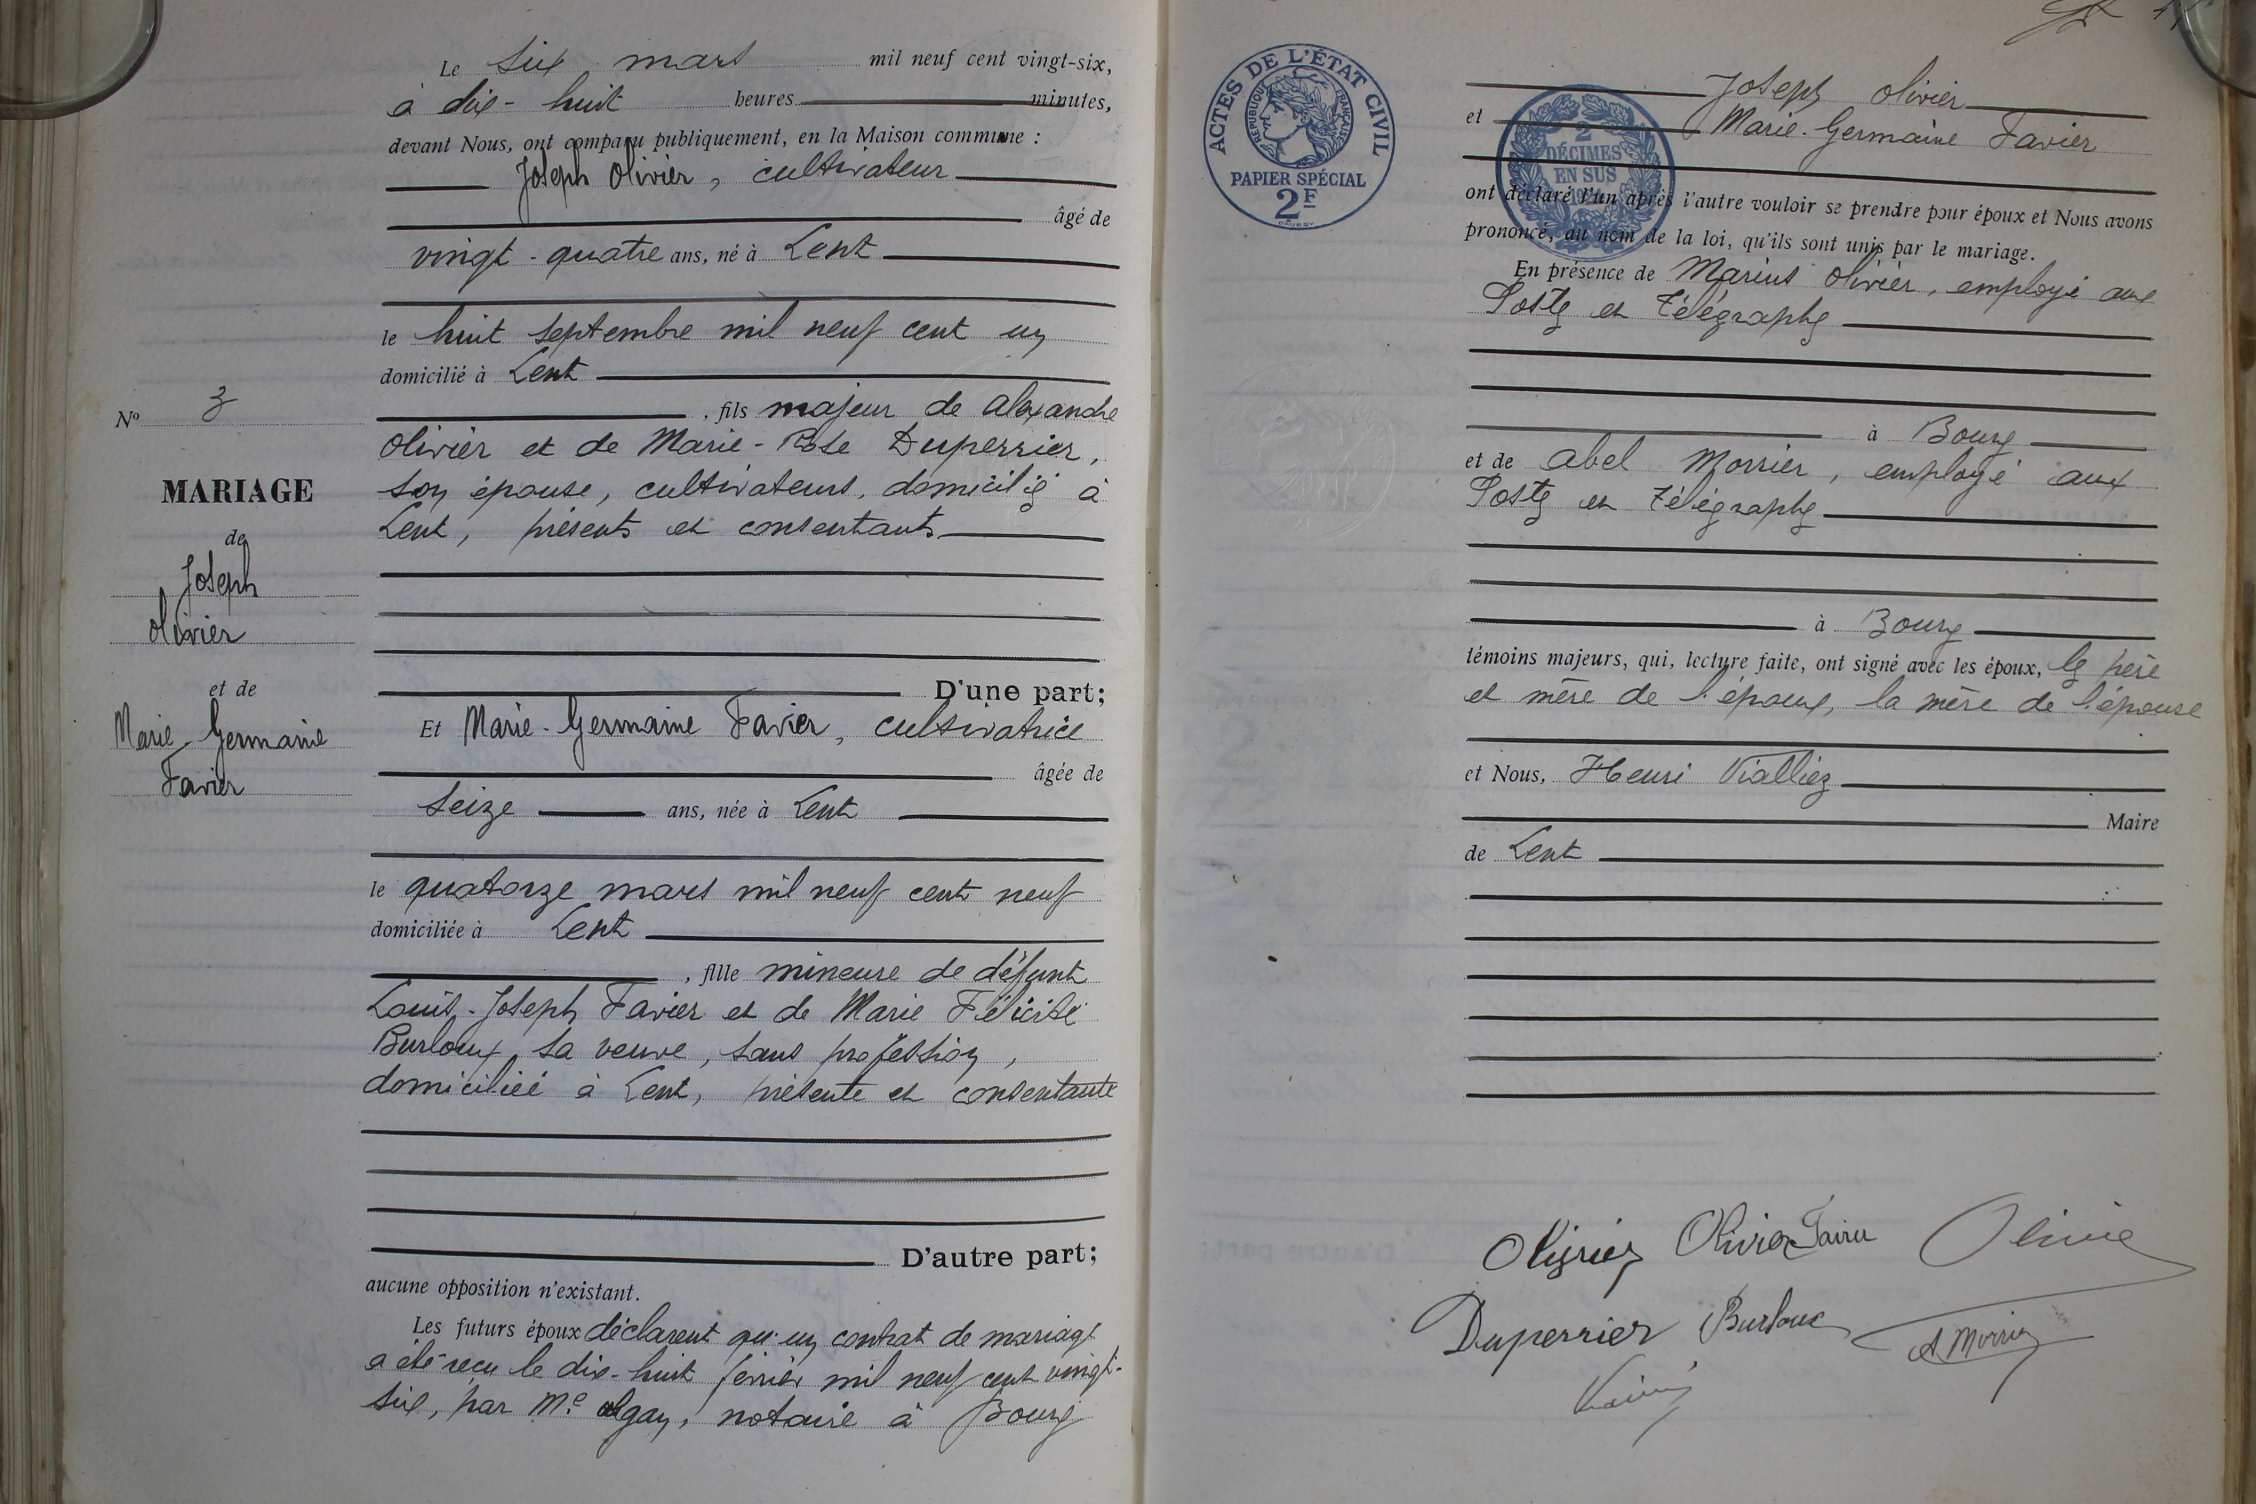 Le six mars mil neuf cent vingt-six,
à dix-huit heures minutes,
devant Nous, ont comparu publiquement, en la Maison commune :
Joseph Olivier, cultivateur
âgé de
vingt-quatre ans, né à Lent
le huit septembre mil neuf cent un
domicilié à Lent
, fils majeur de Alexandre
Olivier et de Marie-Rose Duperrier,
son épouse, cultivateurs, domiciliés à
Lent, présents et consentants
D'une part;
Et Marie-Germaine Favier, cultivatrice
âgée de
seize ans, née à Lent
le quatorze mars mil neuf cent neuf
domiciliée à Lent
, fille mineure de défunt
Louis-Joseph Favier et de Marie Félicité
Burloux, sa veuve, sans profession,
domiciliée à Lent, présente et consentante
D'autre part;
aucune opposition n'existant.
Les futurs époux déclarent qu'un contrat de mariage
a été reçu le dix-huit février mil neuf cent vingt-
six, par Me notaire à Bourg
No 3
MARIAGE
de
Joseph
Olivier
et de
Marie Germaine
Favier
ACTES DE L'ÉTAT CIVIL
RÉPUBLIQUE FRANÇAISE
PAPIER SPÉCIAL
2F
2
DÉCIMES
EN SUS
Joseph Olivier
et Marie-Germaine Favier
ont déclaré l'un après l'autre vouloir se prendre pour époux et Nous avons
prononcé, au nom de la loi, qu'ils sont unis par le mariage.
En présence de Marius Olivier, employé aux
Postes et Télégraphes
à Bourg
et de Abel Morrier, employé aux
Postes et Télégraphes
à Bourg
témoins majeurs, qui, lecture faite, ont signé avec les époux, les père
et mère de l'époux, la mère de l'épouse
et Nous, Henri Vialliez
Maire
de Lent
Olivier Olivier Favier Olivier
Duperrier Burloux A Morrier